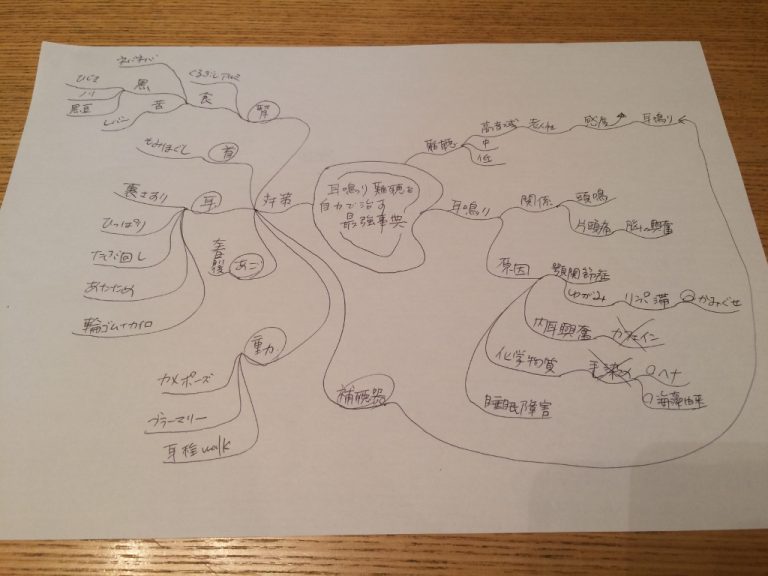 耳鳴り難聴を
自力で治す
最強事典
難聴
高音域
老人性
感度
耳鳴り
中
低
耳鳴り
関係
頭鳴
片頭痛
脳の興奮
原因
顎関節症
ゆがみ
リンパ滞
かみぐせ
内耳興奮
カフェイン
化学物質
毛染メ
ヘナ
海藻由来
睡眠障害
補聴器
対策
腎
食
くるぶし
黒
ひじき
ノリ
黒豆
苦
レバー
首
もみほぐし
耳
裏さすり
ひっぱり
耳たぶ回し
あたため
輪ゴムイカイロ
あご
左右
前後
重力
カメポーズ
ブラーマリー
耳栓walk